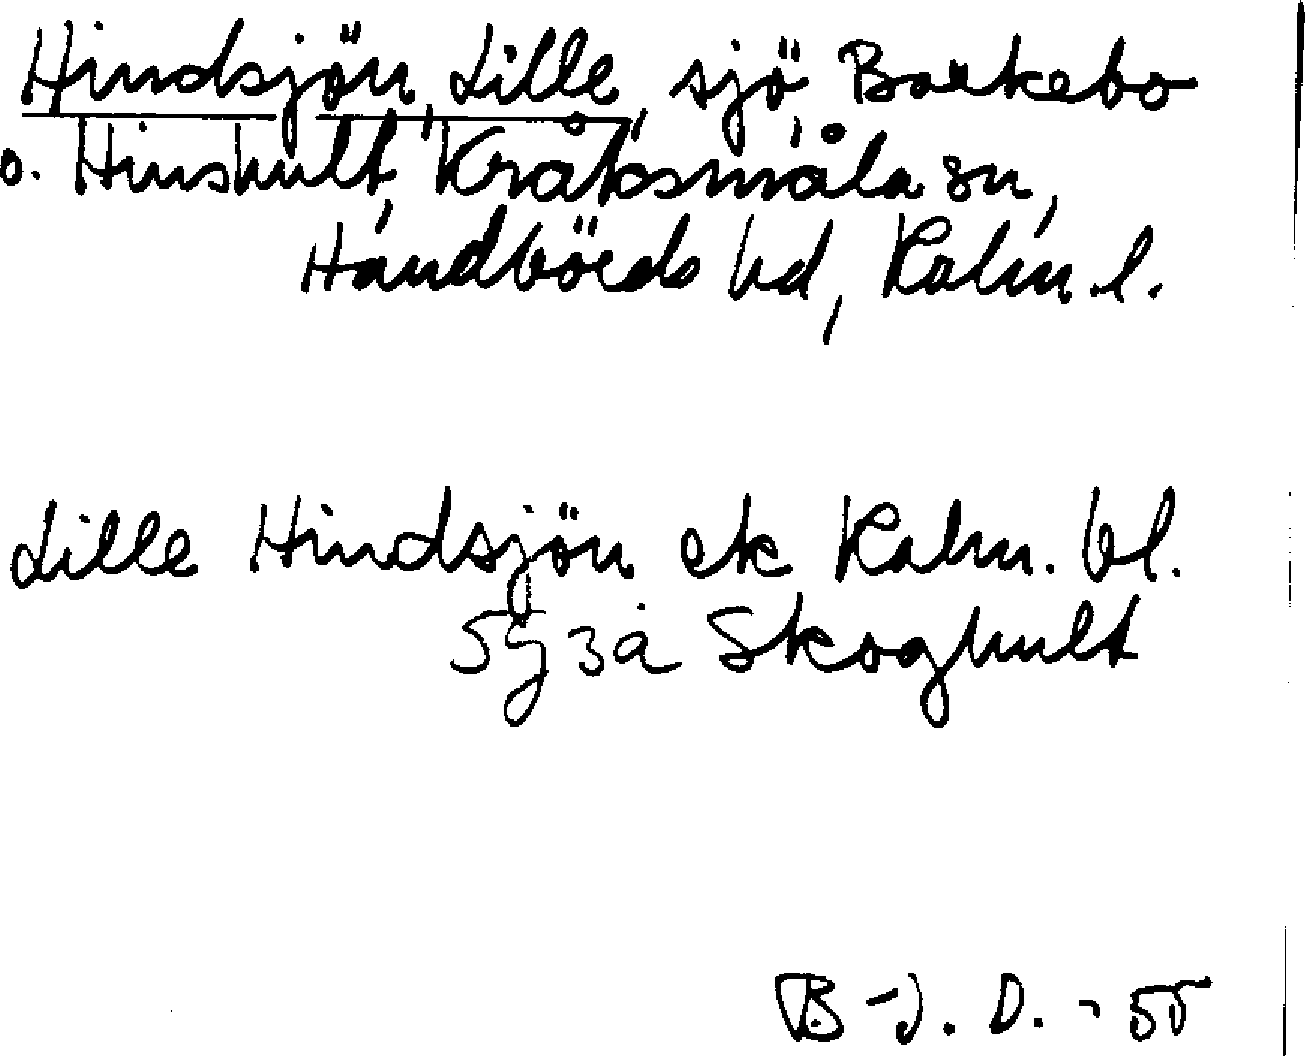 Hindsjön, Lille, sjö, Barkebo
o. Hinshult, Kråksmåla sn,
Handbörds hd, Kalm. l.
Lille Hindsjön ek Kalm. bl.
5g3a Skoghult
B-J. D. -55